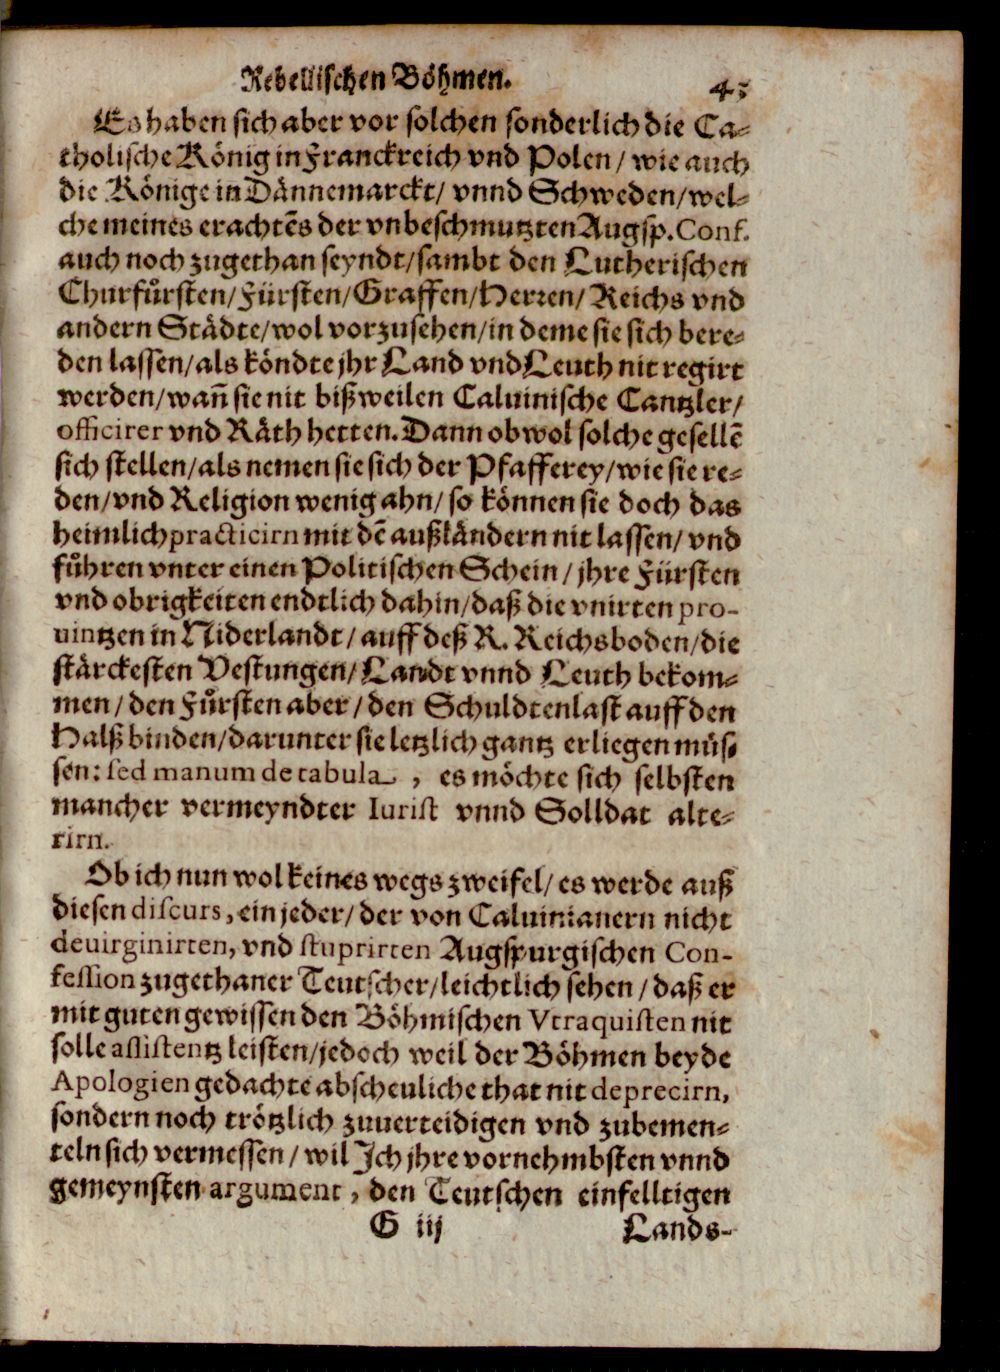 Rebellischen Böhmen.
Es haben sich aber vor solchen sonderlich die Ca-
tholische König in Franckreich vnd Polen / wie auch
die Könige in Dännemarckt / vnnd Schweden / wel-
che meines erachtēs der vnbeschmutzten Augsp. Conf.
auch noch zugethan seyndt / sambt den Lutherischen
Churfürsten / Fürsten / Graffen / Herren / Reichs vnd
andern Städte / wol vorzusehen / in deme sie sich bere-
den lassen / als köndte jhr Land vnd Leuth nit regirt
werden / wañ sie nit bißweilen Caluinische Cantzler /
officirer vnd Räth hetten. Dann obwol solche gesellē
sich stellen / als nemen sie sich der Pfafferey / wie sie re-
den / vnd Religion wenig ahn / so können sie doch das
heimlich practicirn mit dē außländern nit lassen / vnd
führen vnter einen Politischen Schein / jhre Fürsten
vnd obrigkeiten endtlich dahin / daß die vnirten pro-
uintzen in Niderlandt / auff deß R. Reichsboden / die
stärckesten Vestungen / Landt vnnd Leuth bekom-
men / den Fürsten aber / den Schuldtenlast auff den
Halß binden / darunter sie letzlich gantz erliegen müs-
sen: sed manum de tabula , es möchte sich selbsten
mancher vermeyndter Iurist vnnd Solldat alte-
rirn.
Ob ich nun wol keines wegs zweifel / es werde auß
diesen discurs, ein jeder / der von Caluinianern nicht
deuirginirten, vnd stuprirten Augspurgischen Con-
fession zugethaner Teutscher / leichtlich sehen / daß er
mit guten gewissen den Böhmischen Vtraquisten nit
solle assistentz leisten / jedoch weil der Böhmen beyde
Apologien gedachte abscheuliche that nit deprecirn,
sondern noch trötzlich zuuerteidigen vnd zubemen-
teln sich vermessen / wil Ich jhre vornehmbsten vnnd
gemeynsten argument, den Teutschen einfelltigen
G iij Lands-